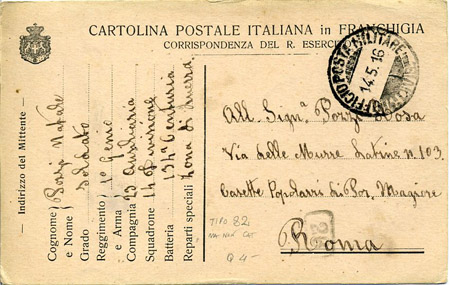 CARTOLINA POSTALE ITALIANA in FRANCHIGIA
CORRISPONDENZA DEL R. ESERCITO
POSTA MILITARE
14.5.16
Indirizzo del Mittente:
Cognome Pozzi Natale
e Nome
Grado Soldato
Reggimento 1º Genio
e Arma
Compagnia 23 Ausiliaria
Squadrone 14 Divisione
Batteria 134ª Centuria
Reparti speciali Zona di Guerra
All Sigª Pozzi Rosa
Via delle Murre Latine n. 103
Casette Popolarri di Por. Magiore
Roma
TIPO 82
Q 4-